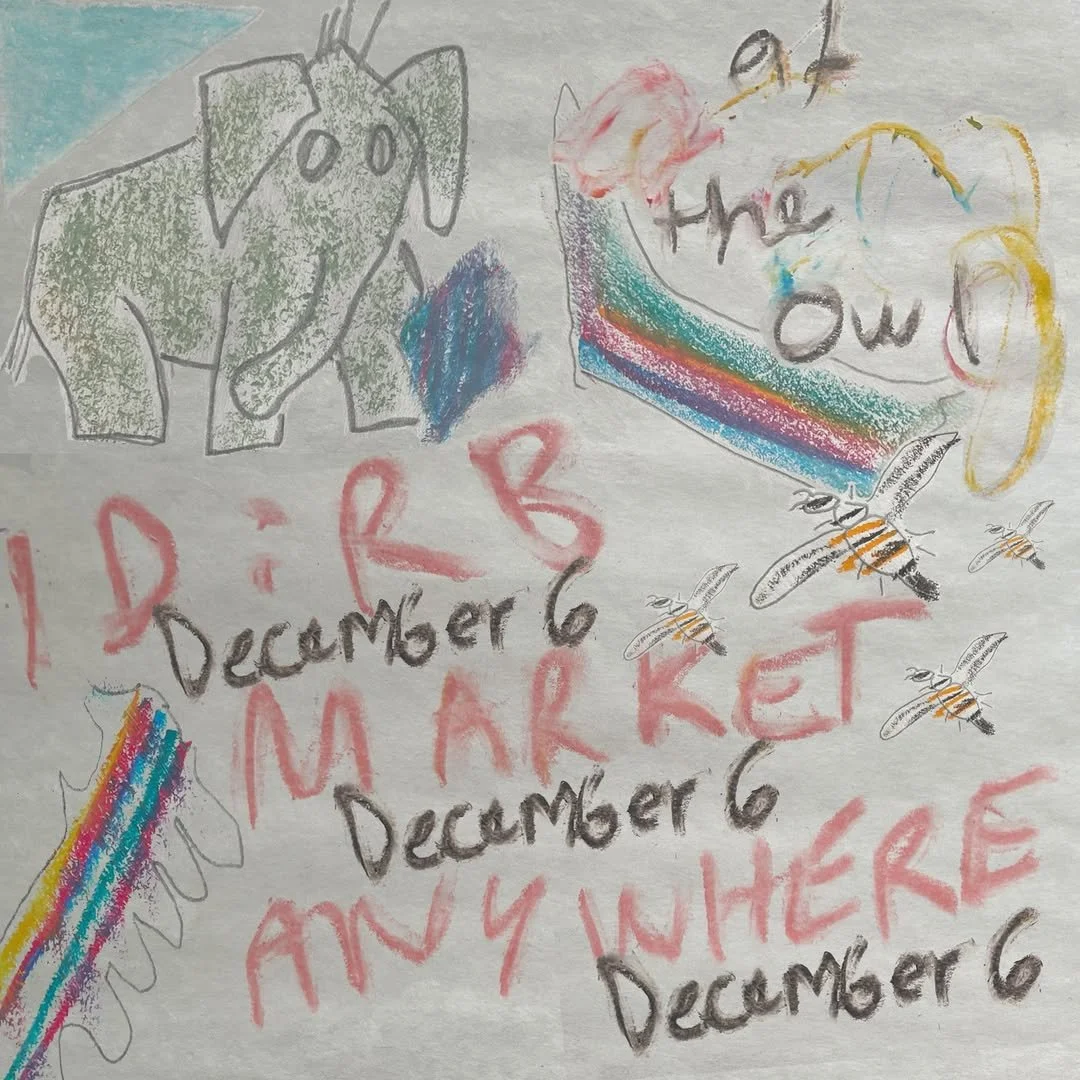 at
the
owl
ID:RB
December 6
MARKET
December 6
ANYWHERE
December 6